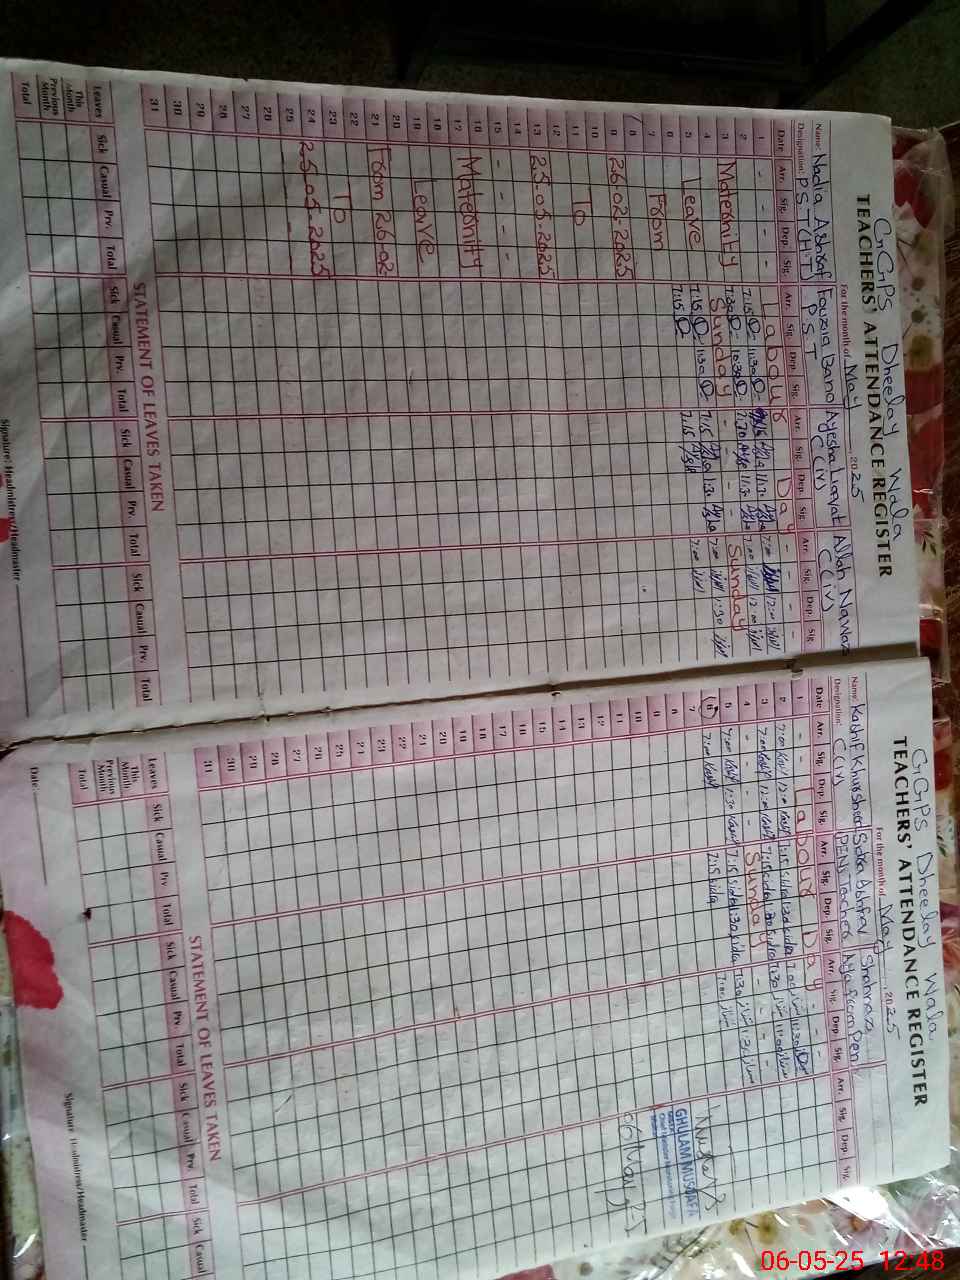 GGPS Dheelay Wala
TEACHERS' ATTENDANCE REGISTER
For the month of May 2025
Name: Nadia Ashraf Fouzia Bano Ayesha Liaqat Allah Nawaz
Designation: P S T (H.T) P S T C (iv) C (iv)
Date Arr. Sig. Dep. Sig. Arr. Sig. Dep. Sig. Arr. Sig. Dep. Sig. Arr. Sig. Dep. Sig.
1 - - - - Labour Day - - - -
2 7:15 11:30 7:15 11:30 7:00 12:00
3 Maternity 7:30 10:30 7:30 11:30 7:00 12:00
4 Sunday - - - - Sunday
5 Leave 7:15 1:30 7:15 1:30 7:00 1:30
6 7:15 7:15 7:00
7 From
8
9 26-02-2025
10
11 To
12
13 25-05-2025
14 - - - -
15 - - - -
16 Maternity
17
18 Leave
19
20 From 26-02
21
22 To
23
24 25-05-2025
25
26
27
28
29
30
31
STATEMENT OF LEAVES TAKEN
Leaves Sick Casual Prv. Total Sick Casual Prv. Total Sick Casual Prv. Total Sick Casual Prv. Total
This Month
Previous Month
Total
Signature: Headmistress/Headmaster
GGPS Dheelay Wala
TEACHERS' ATTENDANCE REGISTER
For the month of May 2025
Name: Kashif Khurshid Sidra Ashraf Shahnaz
Designation: C (iv) PEN Teacher Aya from Pen
Date Arr. Sig. Dep. Sig. Arr. Sig. Dep. Sig. Arr. Sig. Dep. Sig. Arr. Sig. Dep. Sig.
1 - - Labour Day - - - -
2 7:00 12:00 7:15 Sidra 11:30 Sidra 7:00 11:30
3 7:00 12:00 7:15 Sidra Sidra 7:30 11:00
4 - - - Sunday - - - -
5 7:00 1:30 7:15 Sidra 1:30 Sidra 7:30
6 7:00 7:15 Sidra 7:00
7
8
9
10
11
12
13
14
15
16
17
18
19
20
21
22
23
24
25
26
27
28
29
30
31
GHULAM MUSTAFA
06 May
STATEMENT OF LEAVES TAKEN
Leaves Sick Casual Prv. Total Sick Casual Prv. Total Sick Casual Prv. Total Sick Casual
This Month
Previous Month
Total
Date: Signature: Headmistress/Headmaster
06-05-25 12:48